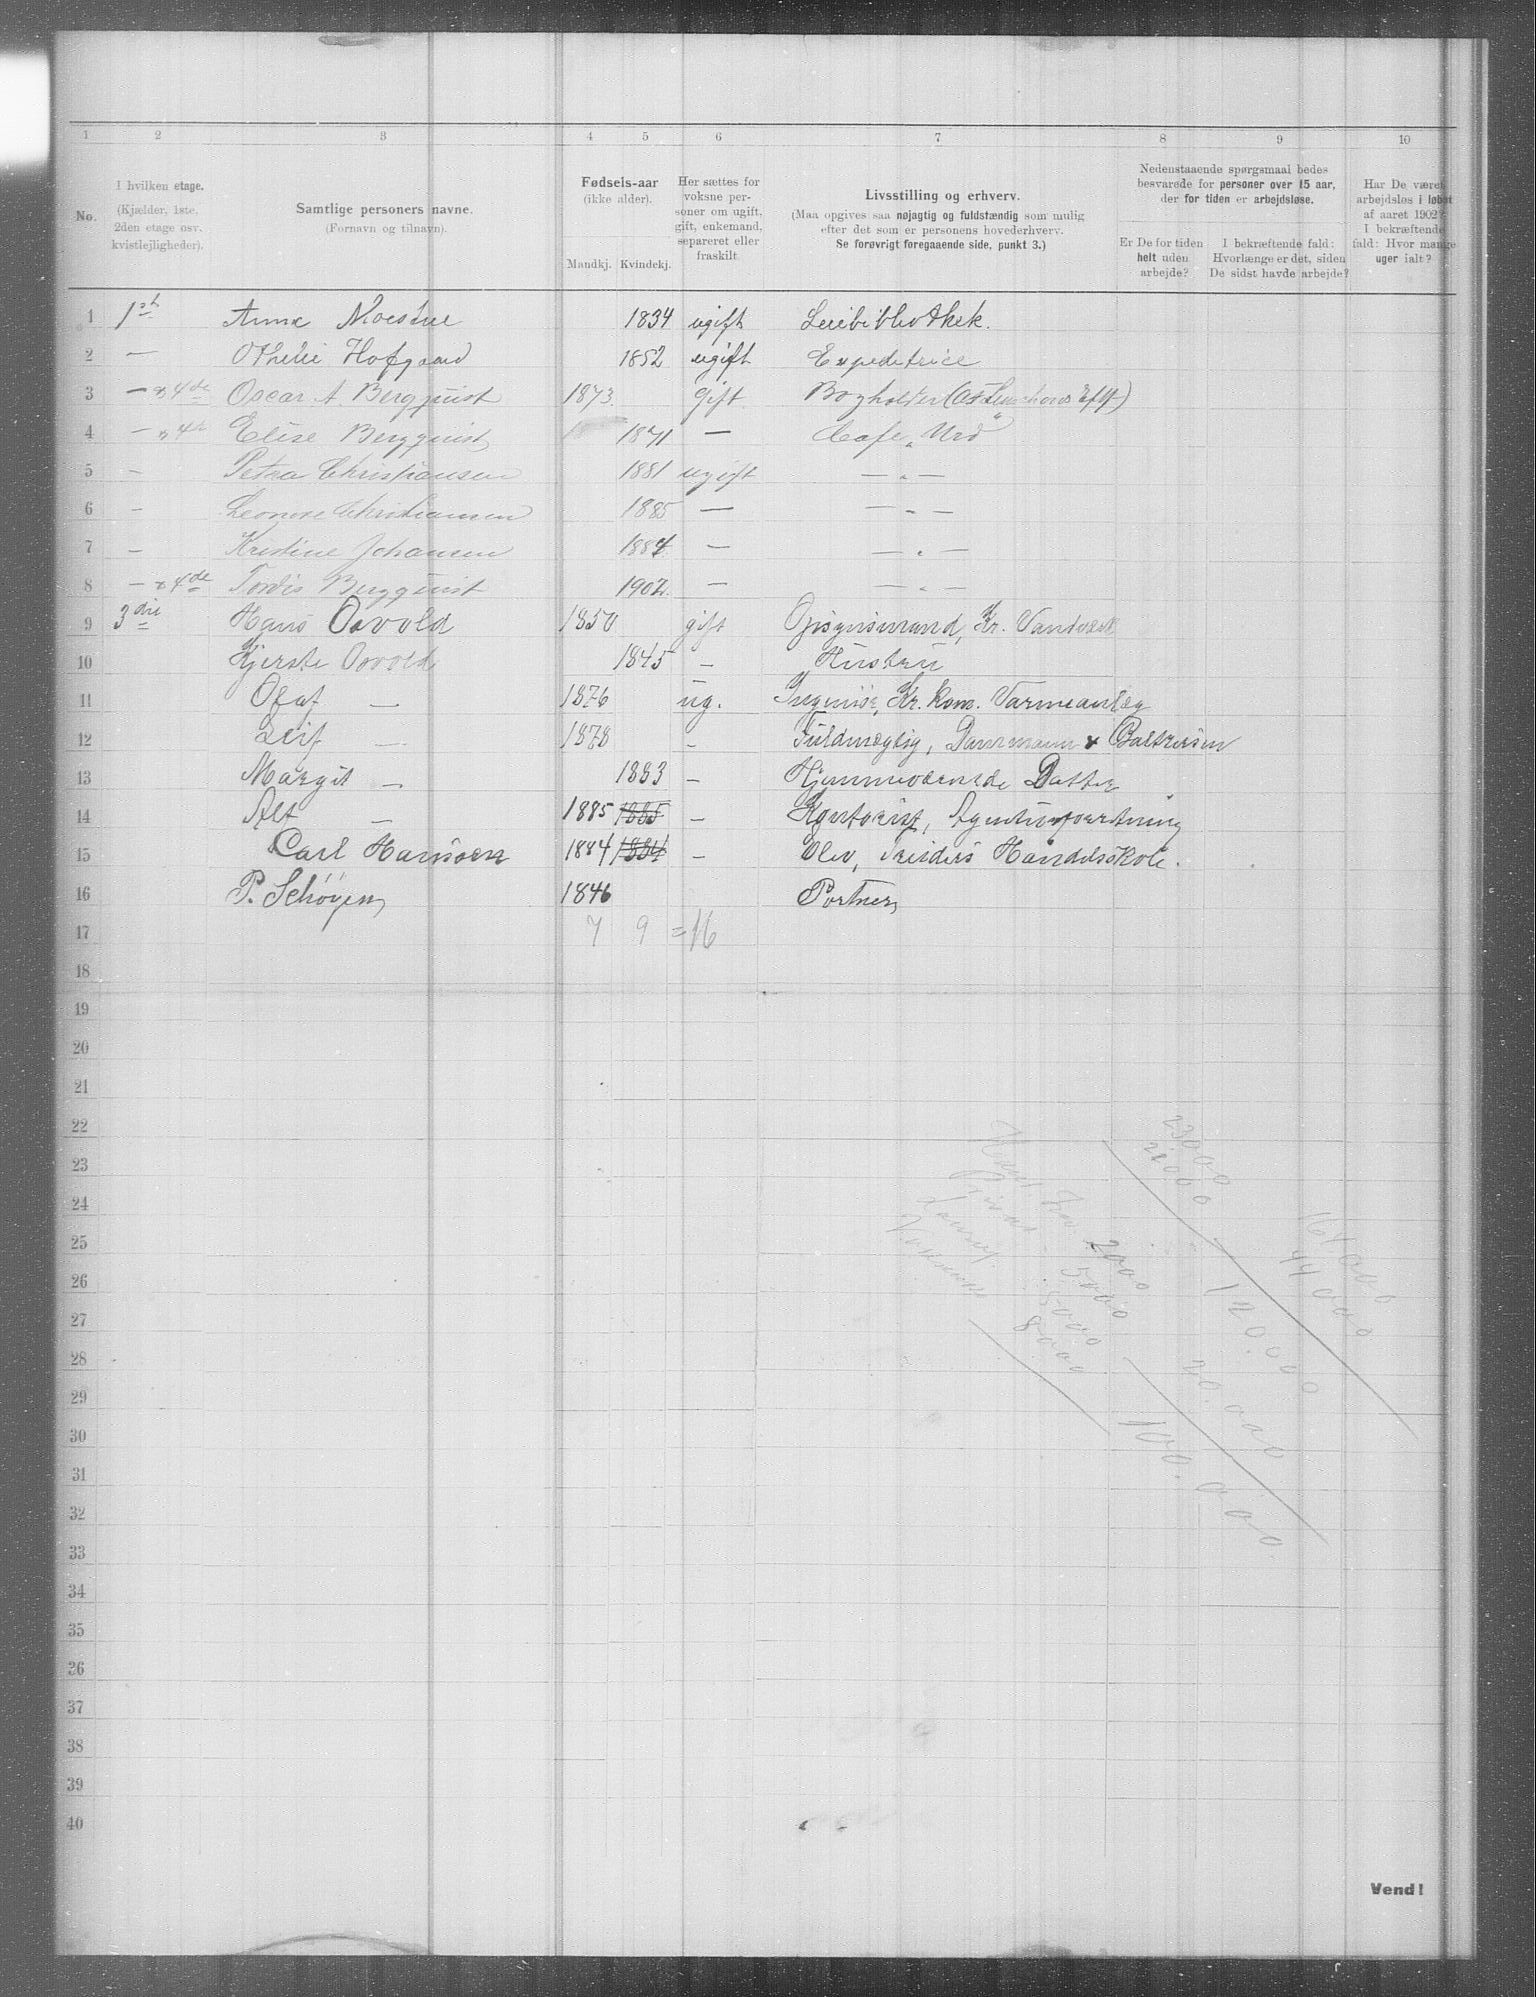 1 2 3 4 5 6 7 8 9 10
No.
I hvilken etage.
(Kjælder, 1ste,
2den etage osv.
kvistlejligheder).
Samtlige personers navne.
(Fornavn og tilnavn).
Fødsels-aar
(ikke alder).
Mandkj. Kvindekj.
Her sættes for
voksne per-
soner om ugift,
gift, enkemand,
separeret eller
fraskilt.
Livsstilling og erhverv.
(Maa opgives saa nøjagtig og fuldstændig som mulig
efter det som er personens hovederhverv.
Se forøvrigt foregaaende side, punkt 3.)
Nedenstaaende spørgsmaal bedes
besvarede for personer over 15 aar,
der for tiden er arbejdsløse.
Er De for tiden
helt uden
arbejde?
I bekræftende fald:
Hvorlænge er det, siden
De sidst havde arbejde?
Har De været
arbejdsløs i løbet
af aaret 1902?
I bekræftende
fald: Hvor mange
uger ialt?
1 1st Anna Moestue 1834 ugift Leiebibliothek.
2 — Othelie Hofgaard 1852 ugift Expeditrice
3 — & 4de Oscar A Bergquist 1873 Gift Bogholder
4 — & 4de Elise Bergquist 1871 — Cafe „Urd"
5 — Petra Christiansen 1881 ugift — „ —
6 — Leonore Christiansen 1885 — — „ —
7 — Kristine Johansen 1884 — — „ —
8 — & 4de Tordis Bergquist 1902. — — „ —
9 3die Hans Osvold 1850 gift Opsynsmand, Kr. Vandværk
10 Kjerste Osvold 1845 — Hustru
11 Olaf — 1876 ug. Ingeniør, Kr. kom. Varmeanlæg
12 Leif — 1878 - Fuldmægtig, Danmann & Baltzersen
13 Margit — 1883 — Hjemmeværende Datter
14 Alf — 1885 1885 — Kontorist, Agenturforretning
15 Carl Hanssen 1884 1884 — Elev, Treiders Handelsskole.
16 P. Schøyen 1846 Portner
17 7 9 = 16
18
19
20
21
22
23
24
25
26
27
28
29
30
31
32
33
34
35
36
37
38
39
40
23000
21000
164000
44000
120.000
20.000
100.000
2000
5000
5000
8000
Vend!